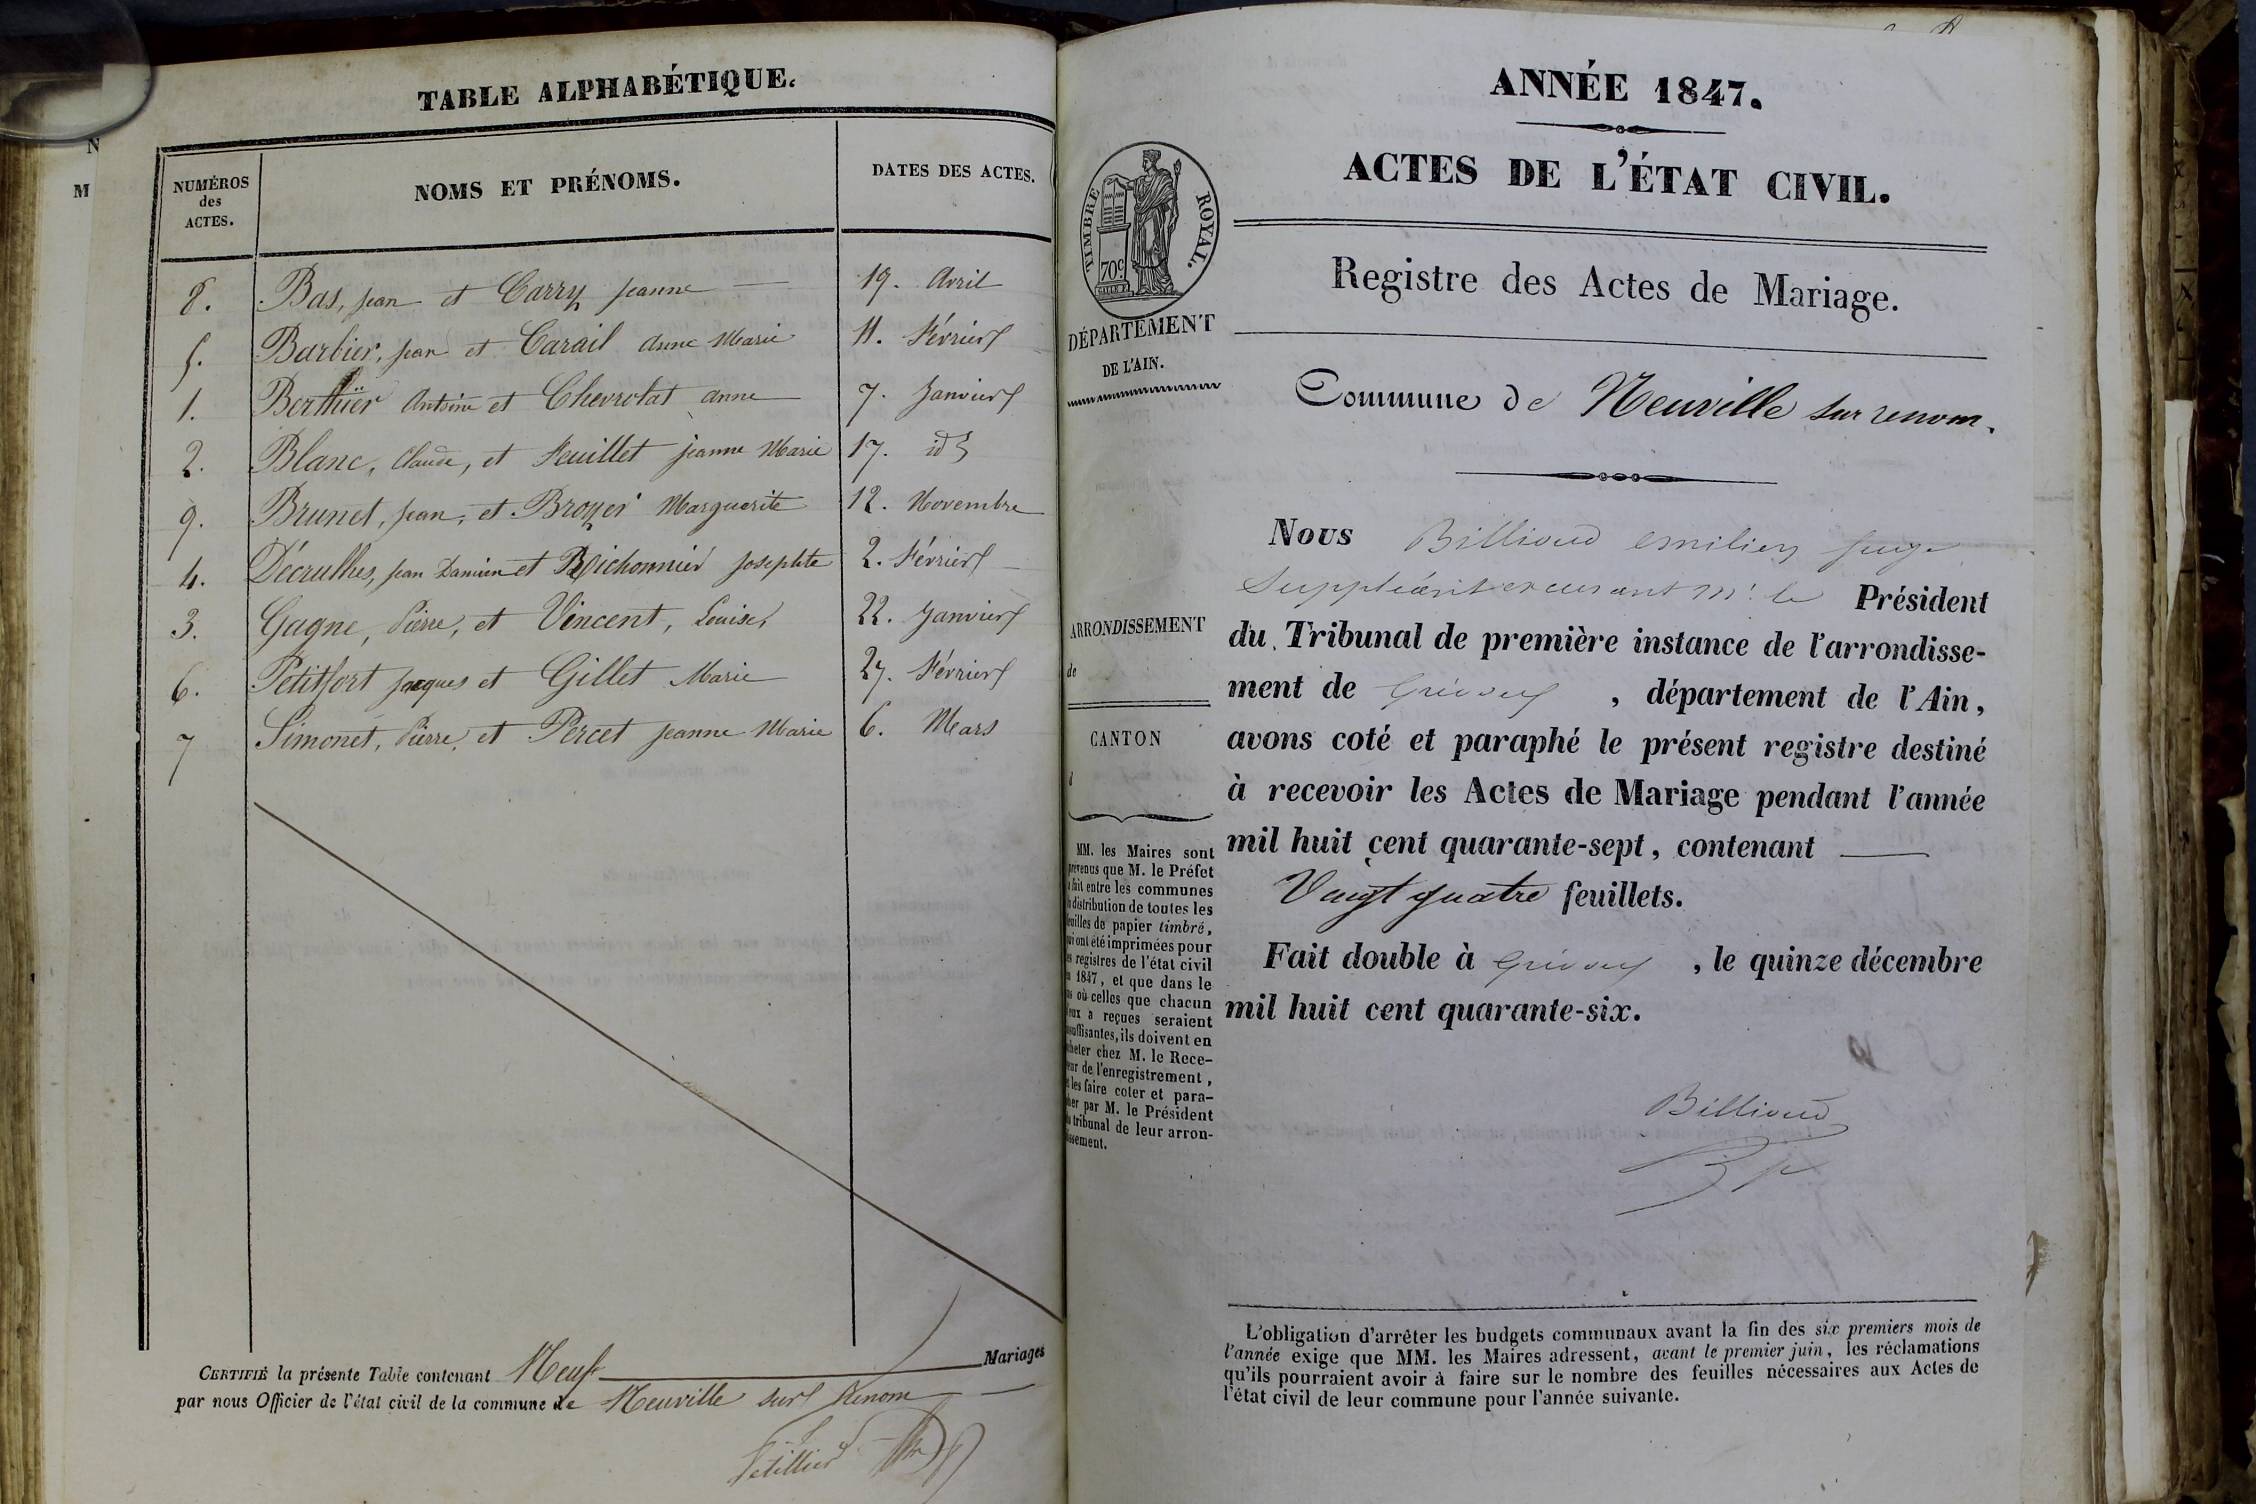 TABLE ALPHABÉTIQUE.
NUMÉROS
des
ACTES.
NOMS ET PRÉNOMS.
DATES DES ACTES.
8. Bas, jean et Carry jeanne 19. Avril
5. Barbier, jean et Carail anne Marie 11. Février
1. Berthier Antoine et Chevrolat anne 7. Janvier
2. Blanc, Claude, et Feuillet jeanne Marie 17. id
9. Brunet, jean, et Broyer Marguerite 12. Novembre
4. Décrulhes, jean Damien et Richonnier josephte 2. Février
3. Gagne, Pierre, et Vincent, Louise, 22. Janvier
6. Petitfort jacques et Gillet Marie 27. Février
7 Simonet, Pierre, et Percet jeanne Marie 6. Mars
CERTIFIÉ la présente Table contenant Neuf Mariages
par nous Officier de l'état civil de la commune de Neuville sur Renom
N
M
ANNÉE 1847.
ACTES DE L'ÉTAT CIVIL.
TIMBRE ROYAL.
70c
Registre des Actes de Mariage.
DÉPARTEMENT
DE L'AIN.
Commune de Neuville sur renom.
Nous Billioud emilien juge
Suppléant excusant Mr. le Président
du Tribunal de première instance de l'arrondisse-
ment de , département de l'Ain,
avons coté et paraphé le présent registre destiné
à recevoir les Actes de Mariage pendant l'année
mil huit cent quarante-sept, contenant
Vingt quatre feuillets.
Fait double à , le quinze décembre
mil huit cent quarante-six.
Billioud
ARRONDISSEMENT
de
CANTON
d
MM. les Maires sont
prévenus que M. le Préfet
a fait entre les communes
la distribution de toutes les
feuilles de papier timbré,
qui ont été imprimées pour
les registres de l'état civil
en 1847, et que dans le
cas où celles que chacun
d'eux a reçues seraient
insuffisantes, ils doivent en
acheter chez M. le Rece-
veur de l'enregistrement,
et les faire coter et para-
pher par M. le Président
du tribunal de leur arron-
dissement.
L'obligation d'arrêter les budgets communaux avant la fin des six premiers mois de
l'année exige que MM. les Maires adressent, avant le premier juin, les réclamations
qu'ils pourraient avoir à faire sur le nombre des feuilles nécessaires aux Actes de
l'état civil de leur commune pour l'année suivante.